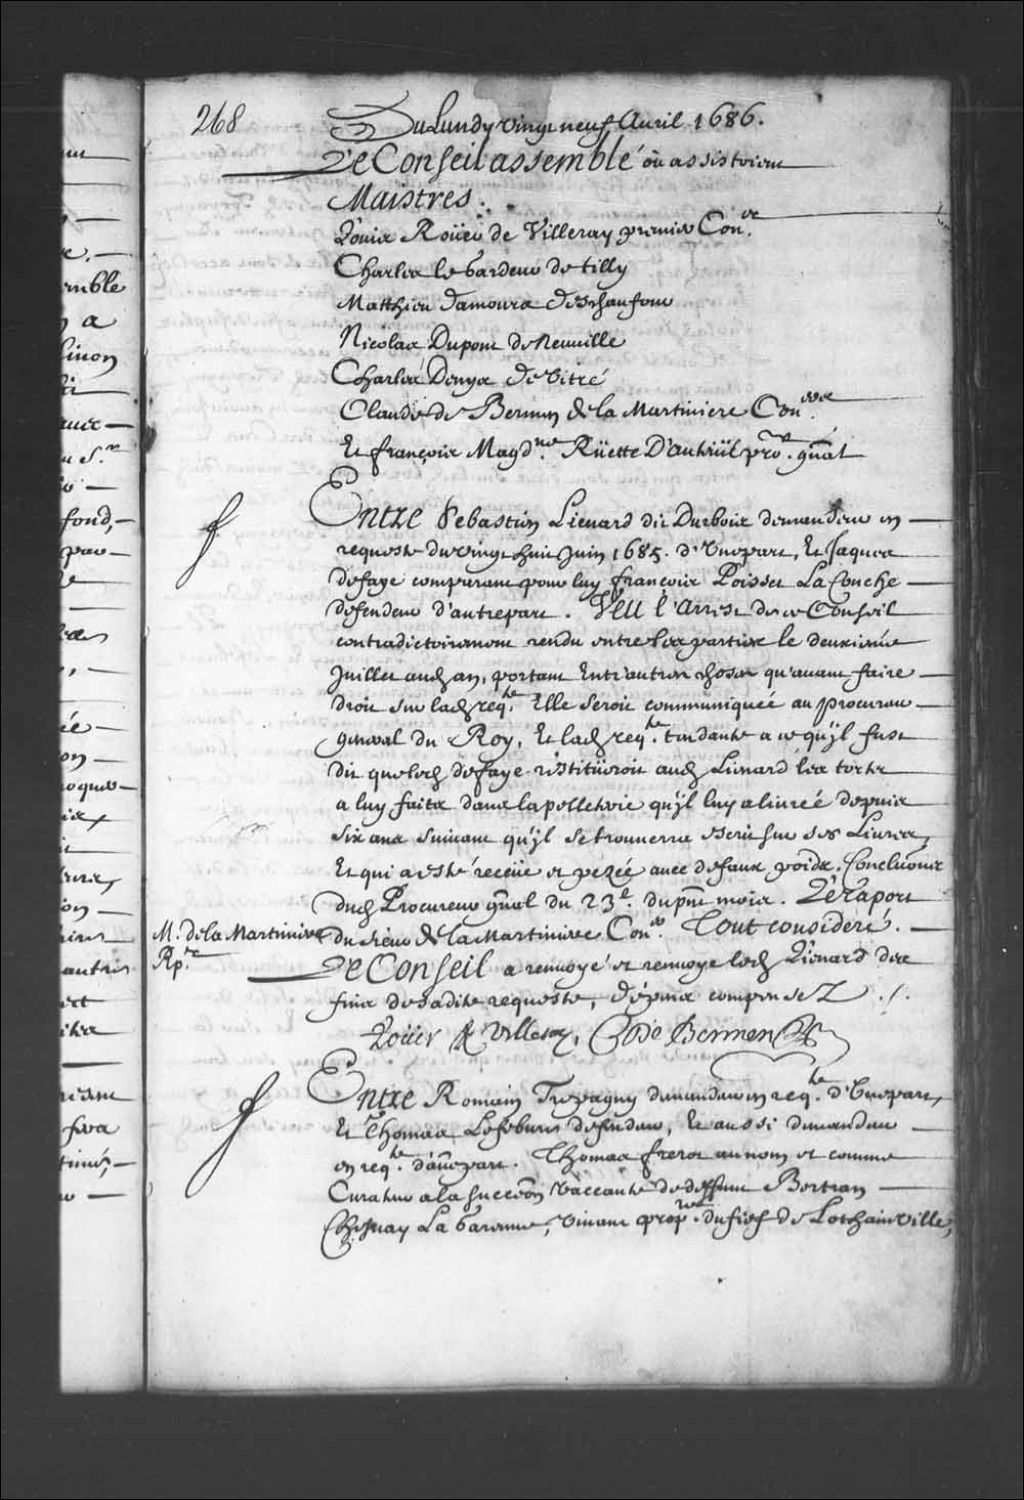 268
Du Lundy vingt neuf Auril 1686.
Le Conseil assemblé où assistoient
Maistres.
Louis Roüer de Villeray premier Con.er
Charles le Gardeur de tilly
Matthieu damours deschaufour
Nicolas Dupont de Neuuille
Charles Denys de Vitré
Claude de Bermen de la Martiniere Con.ers
Et françois Magd.ne Rüette D'auteüil pro.r gñal
Entre Sebastien Lienard dit Durbois demandeur en
requeste du vingt huit Juin 1685. d'vne part, Et Jaques
defaye comparant pour luy françois Poisset La Conche
defendeur d'autre part. Veu l'arrest de ce Conseil
contradictoirement rendu entre les parties le deuxieme
Juillet aud an, portant Entr'autres choses qu'auant faire
droit sur lad req.te Elle seroit communiquée au procureur
general du Roy, Et lad req.te tendante a ce qu'jl fust
dit que led defaye restitüeroit aud Lienard les torts
a luy faits dans la pelleterie qu'jl luy a liurée depuis
six ans suiuant qu'jl se trouuerra escrit sur ses Liures,
Et qui a esté receüe et pezée auec de faux poids. Conclusions
dud Procureur gñal du 23.e du pñt mois. Le Raport
M.r de la Martiniere
Rp.r
du sieur de la Martiniere Con.er Tout consideré.
Le Conseil a renuoyé et renuoye led Lienard des
fins de sadite requeste, dépens compensez ./.
Roüer de Villeray, C De Bermen
Entre Romain Trepagny demandeur en req.te d'vne part,
Et Thomas Lefebure defendeur, Et aussi demandeur
en req.te d'aũe part. Thomas frerot au nom et comme
Curateur a la succeõn vaccante de deffunt Bertran
Chesnay La Garenne, viuant prop.re du fief de Lothainville,
mble
a
fond,
autres